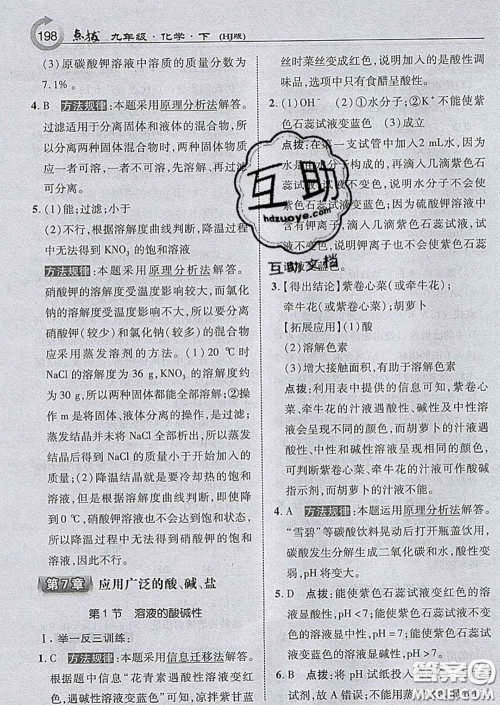 198 点拨 九年级·化学·下 (HJ版)
(3)原碳酸钾溶液中溶质的质量分数为
7.1%。
4. B 方法规律:本题采用原理分析法解答。
过滤适用于分离固体和液体的混合物,所
以分离两种固体混合物时,两种固体物质
应一者可溶,一者不可溶,先溶解、再过滤
可分离。
5. (1)能;过滤;小于
(2)不行,根据溶解度曲线判断,降温过程
中无法得到 KNO3 的饱和溶液
方法规律:本题采用原理分析法解答。
硝酸钾的溶解度受温度影响较大,而氯化
钠的溶解度受温度影响不大,所以分离
硝酸钾(较少)和氯化钠(较多)的混合物
应采用蒸发溶剂的方法。(1)20 ℃时
NaCl 的溶解度为 36 g,KNO3 的溶解度约
为 30 g,所以两种固体都能全部溶解;②操
作 m 是将固体、液体分离的操作,是过滤;
蒸发结晶并未将 NaCl 全部析出,所以蒸发
结晶得到的 NaCl 的质量小于开始加入的
质量。(2)降温结晶就是要冷却热的饱和
溶液,但是根据溶解度曲线判断,即使降
温到 0 ℃,硝酸钾溶液仍然达不到饱和状
态,无法得到硝酸钾的饱和溶液。
第7章 应用广泛的酸、碱、盐
第1节 溶液的酸碱性
1. 举一反三训练:
1. C 方法规律:本题采用信息迁移法解答。
根据题中信息“花青素遇酸性溶液变红
色,遇碱性溶液变蓝色”可知,凉拌紫甘蓝
丝时菜丝变成红色,说明加入的是酸性调
味品,选项中只有食醋呈酸性。
2. (1)OH- (2)①水分子;②K+不能使紫
色石蕊试液变蓝色 (3)成立
点拨:在第一支试管中加入2 mL水,因为
水是由水分子构成的,再滴入几滴紫色石
蕊试液不变色,说明水分子不会使
紫色石蕊试液变蓝色;因为硫酸钾溶液中
含有钾离子,滴入几滴紫色石蕊试液,试液
不变色,说明钾离子也不会使紫色石蕊
试液变蓝色。
3. 【得出结论】紫卷心菜(或牵牛花);
牵牛花(或紫卷心菜);胡萝卜
【拓展应用】(1)酸
(2)溶解色素
(3)增大接触面积,有助于溶解色素
点拨:利用表中提供的信息可知,紫卷心
菜、牵牛花的汁液遇酸性、碱性及中性溶液
会呈现不同的颜色,而胡萝卜的汁液遇酸
性、中性和碱性溶液呈现的颜色相同,故紫
卷心菜、牵牛花的汁液可作酸碱指示剂使
用,而胡萝卜的汁液不能。
4. A 方法规律:本题运用原理分析法解答。
“雪碧”等碳酸饮料晃动后打开瓶盖,气体
喷出,碳酸减少,酸性减弱,溶液的 pH
增大。
5. D 点拨:能使紫色石蕊试液变红色的溶
液显酸性,pH<7;能使紫色石蕊试液变蓝
色的溶液显碱性,pH>7。
6. B 点拨:将 pH 试纸投入
剂,故 A 错误;不能用蒸
互助
hdzuoye.com
互助文档
答案圈
MXQE.COM